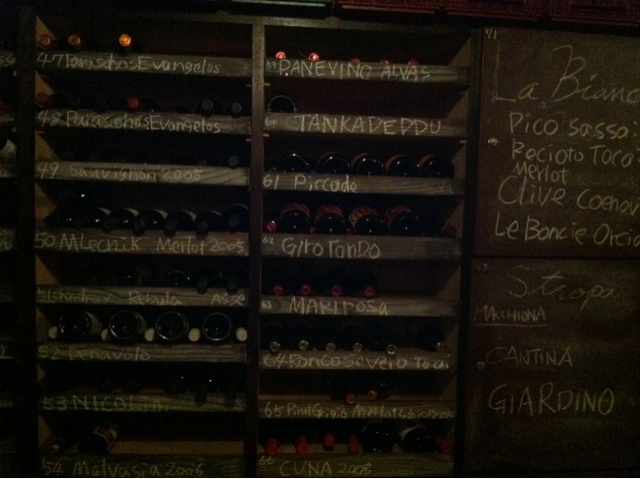 47 Paraschos Evangelos
48 Paraschos Evangelos
49 Sauvignon 2005
50 Mlecnik Merlot 2005
Rebula
52 Denavolo
53 NICOLINI
54 Malvasia 2006
59 PANEVINO ALVAS
60 TANKADEDDU
61 Piccade
62 GIROTONDO
63 MARIPOSA
64 Ronco Severo Tocai
65 Pinot Grigio Merlot
66 CUNA 2008
La Bianc
Pico Sassa
Recioto Tocai
Merlot
Clive Coenov
Le Boncie Orcia
Stropa
MACCHIONA
CANTINA
GIARDINO